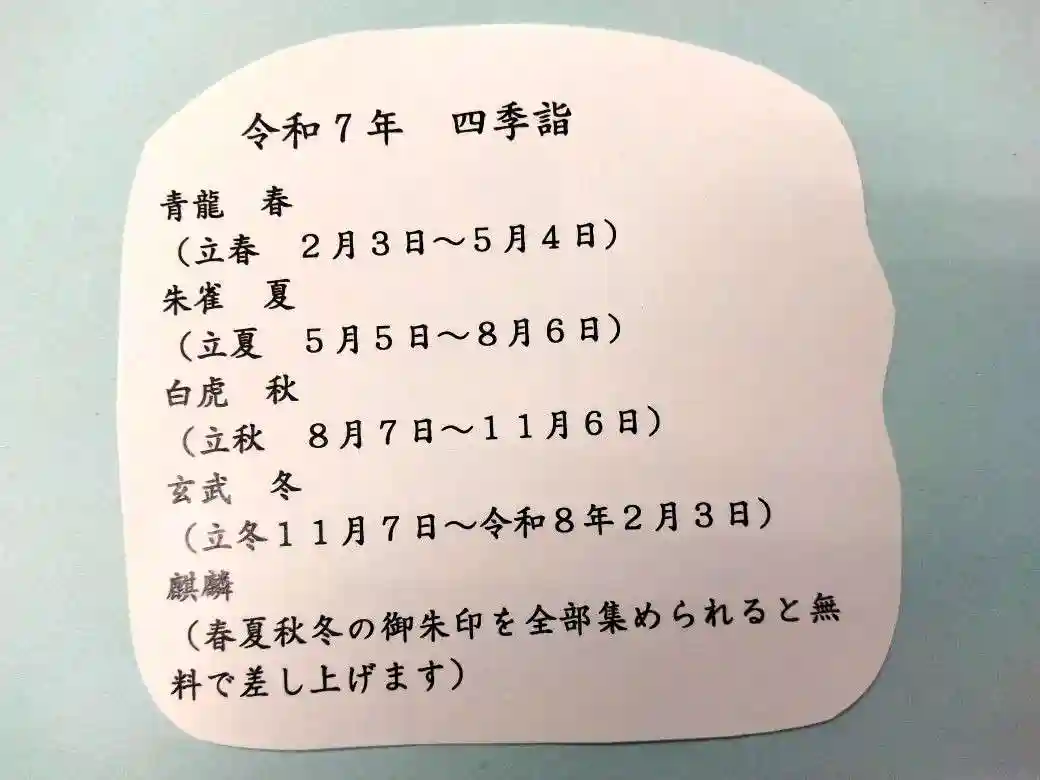 令和７年　四季詣
青龍　春
（立春　２月３日～５月４日）
朱雀　夏
（立夏　５月５日～８月６日）
白虎　秋
（立秋　８月７日～１１月６日）
玄武　冬
（立冬１１月７日～令和８年２月３日）
麒麟
（春夏秋冬の御朱印を全部集められると無
料で差し上げます）